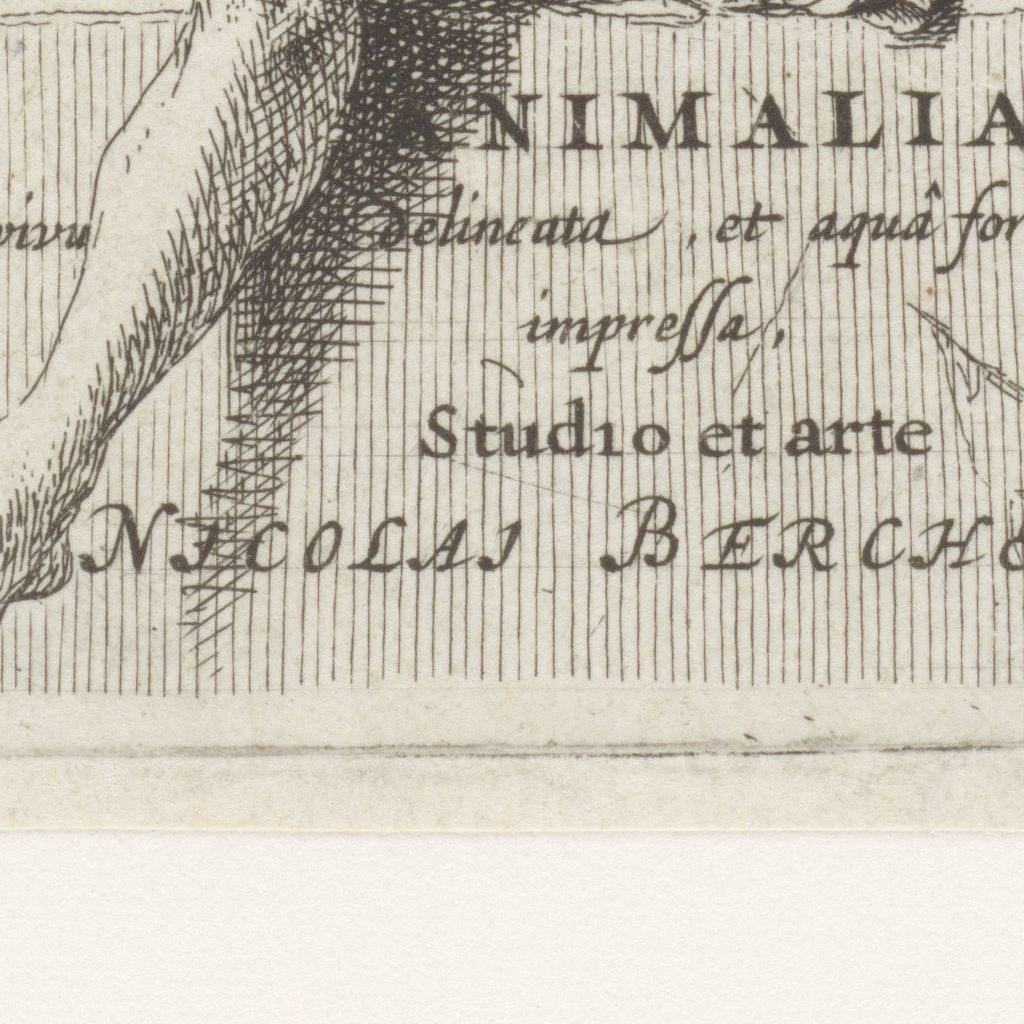 ANIMALIA
vivu Delineata, et aquâ for
impreſſa,
Studio et arte
NICOLAI BERCHE